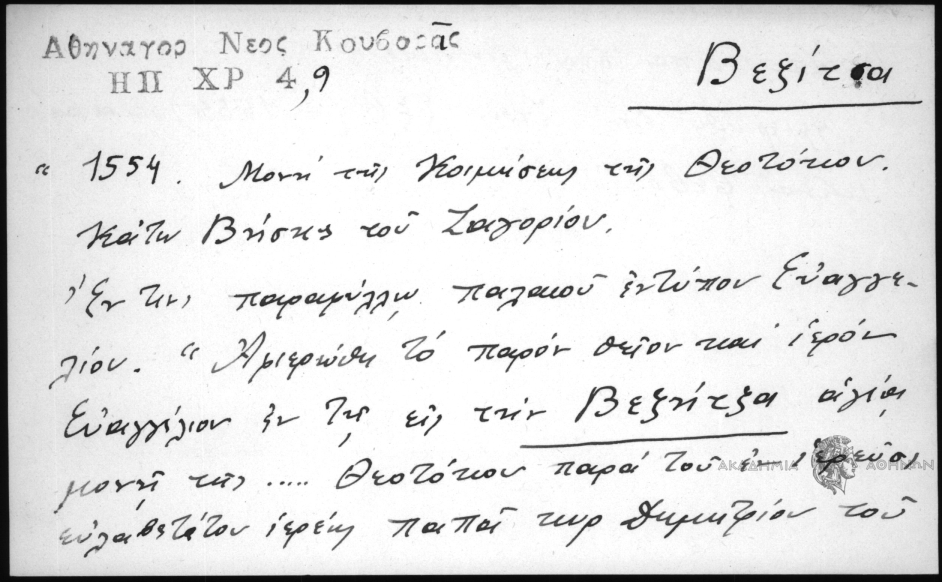 Αθηναγορ Νεος Κουβαρᾶς
ΗΠ ΧΡ 4,9
Βεξίτσα
“ 1554. Μονή τῆς Κοιμήσεως τῆς Θεοτόκου.
Κάτω Βήσης τοῦ Ζαγορίου.
Ἔν τινι παραφύλλῳ παλαιοῦ ἐντύπου Εὐαγγε-
λίου. “ Ἀφιερώθη τό παρόν θεῖον καί ἱερόν
Εὐαγγέλιον ἐν τῇ εἰς τήν Βεξήτζα ἁγίᾳ
μονῇ τῆς ..... Θεοτόκου παρά τοῦ ἐν ἱερεῦσι
εὐλαβετάτου ἱερέως παπᾶ κυρ Δημητρίου τοῦ
ΑΚΑΔΗΜΙΑ ΑΘΗΝΩΝ